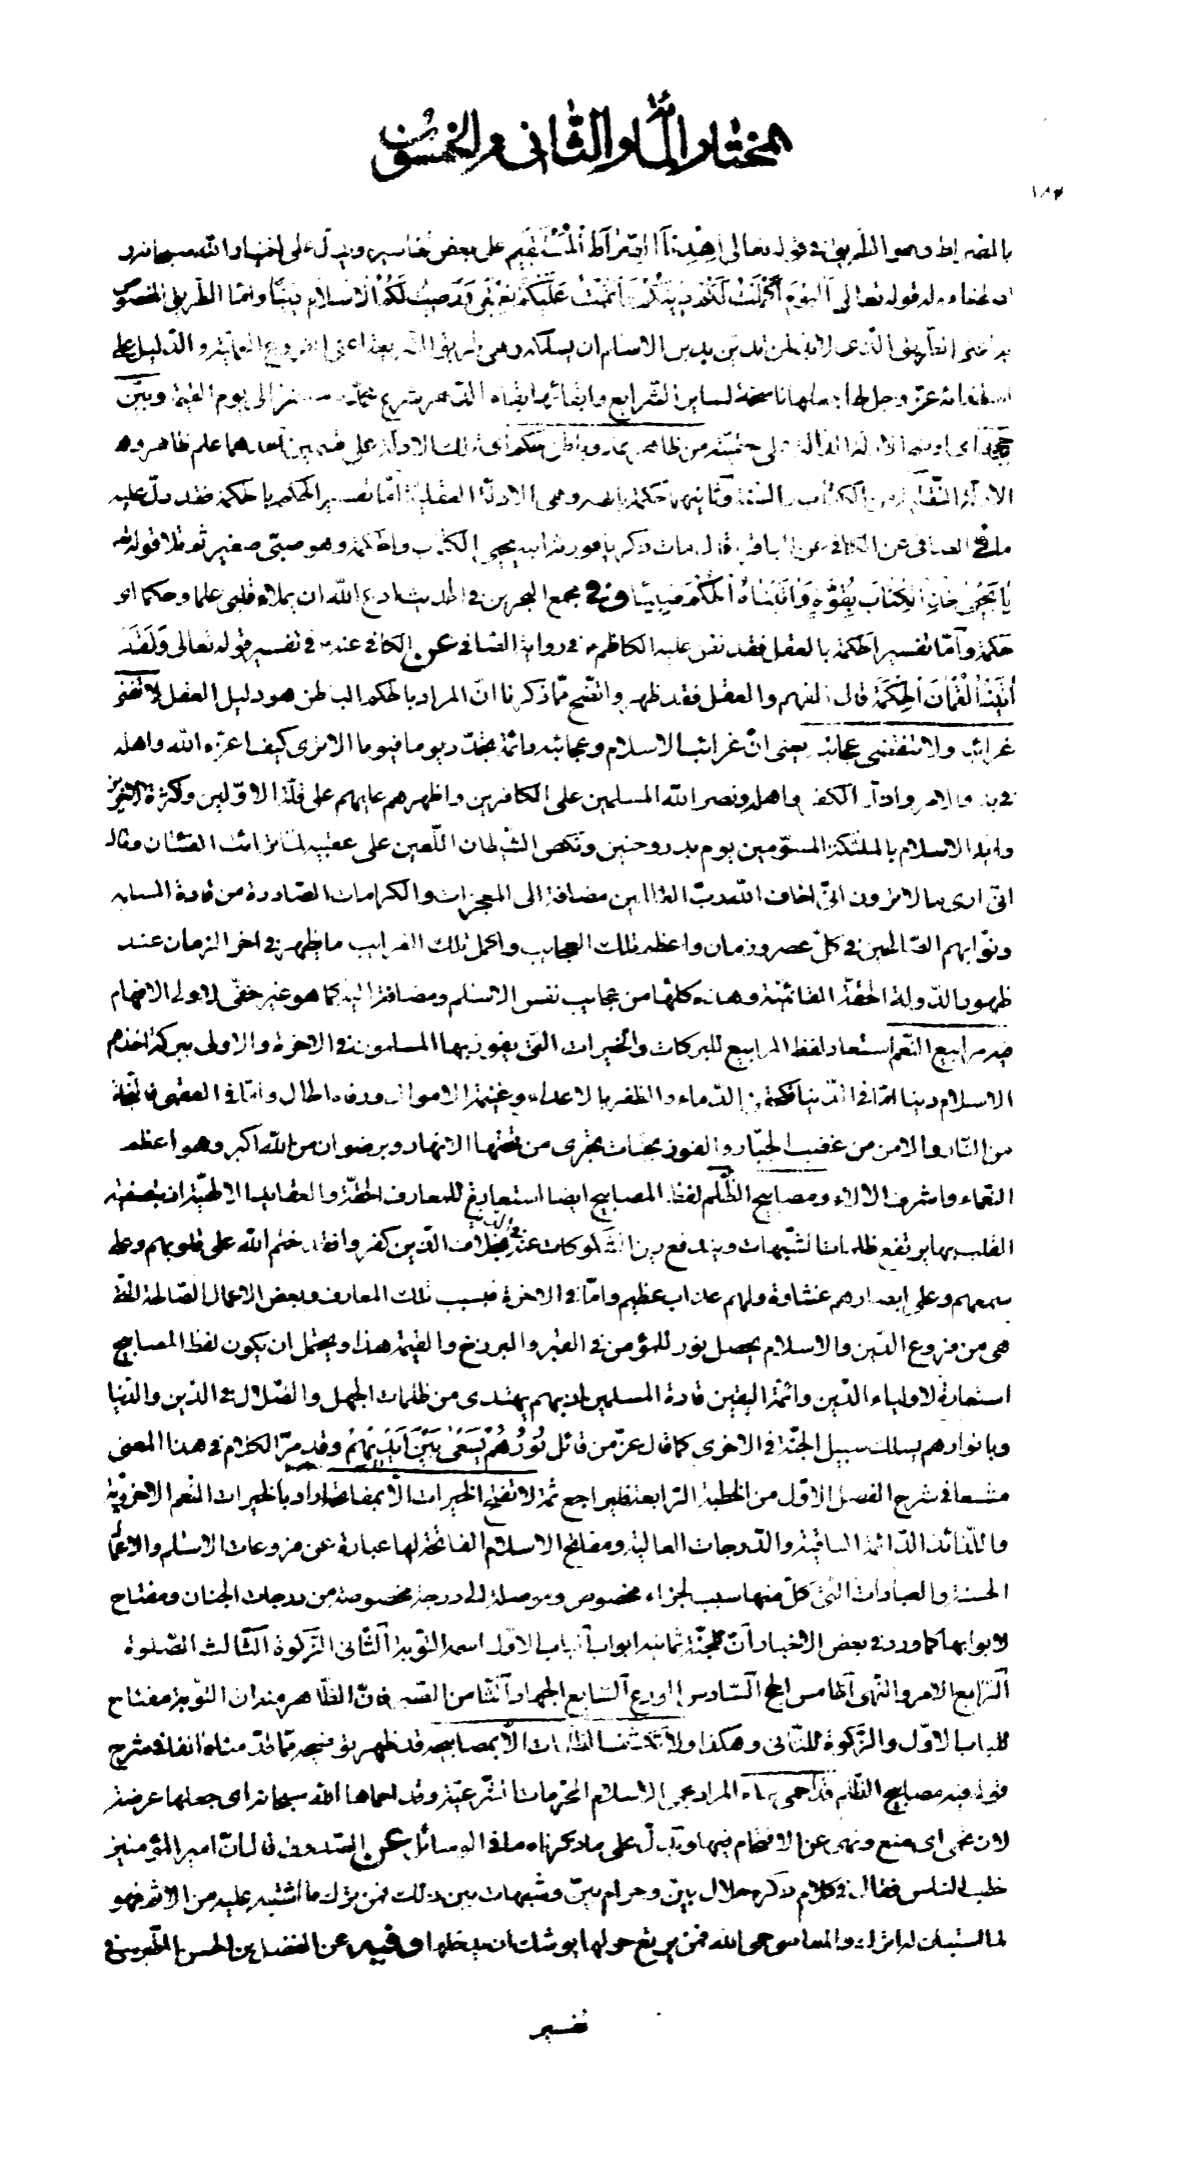 المختار المأة والثانى والخمسون
١٨٢
بالصراط وهو الطريق فى قوله تعالى اهْدِنَا الصِّرَاطَ الْمُسْتَقِيم على بعض تفاسيره ويدل على اختيار الله سبحانه
له قوله تعالى اَلْيَوْمَ أَكْمَلْتُ لَكُمْ دِينَكُمْ وَأَتْمَمْتُ عَلَيْكُمْ نِعْمَتِى وَرَضِيتُ لَكُمُ الْاِسْلامَ دِينًا وامّا الطريق المخصوص
الطريق الذى لابد لمن تديّن بدين الاسلام ان يسلكه وهى الفروع العمليّة والدّليل على
اصطفائه عزّ وجل لها جعلها ناسخة لساير الشّرايع وابقائها بقاء الدّهر الى يوم القيمة وبيّن
حججه اى الادلّة الدالة على حقيّته من ظاهر علم وباطن حكم اى تلك الادلّة على قسمين أحدهما علم ظاهر وهى
الادلّة النّقليّة من الكتاب والسّنة وثانيهما حكمة باطنه وهى الادلّة العقليّة امّا تفسير الحكم با حكمة فقد دلّ عليه
ما فى الصافى عن الكافى عن الباقر قال مات ذكريا فورثه ابنه يحيى الكتاب والحكمة وهو صبىّ صغير ثم تلا قوله تعه
يا يَحْيَى خُذِ الْكِتَابَ بِقُوَّةٍ وَآتَيْنَاهُ الْحُكْمَ صَبِيًّا وفى مجمع البحرين فى الحديث ادع الله ان يملاء قلبى علما وحكما اى
حكمة وامّا تفسير الحكمة بالعقل فقد نصّ عليه الكاظم ع فى رواية الصّافى عن الكافى عنه ع فى تفسير قوله تعالى وَلَقَدْ
اٰتَيْنَا لُقْمَانَ الْحِكْمَةَ قال الفهم والعقل فقد ظهر واتّضح ممّا ذكرنا انّ المراد بالحكم الباطن هو دليل العقل لا تفنى
غرائبه ولا تنقضى عجائبه يعنى انّ غرائب الاسلام وعجائبه دائمة تجدّد يوما فيوما الا ترى كيف اعزّه الله واهله
فى بدو الامر واذلّ الكفر واهله ونصر الله المسلمين على الكافرين واظهرهم عليهم على قلّة الاوّلين وكثرة الآخرين
وايّد الاسلام بالملئكة المسوّمين يوم بدر وحنين ونكص الشّيطان اللّعين على عقبيه لمّا ترائت الفئتان وقال
انّى ارى ما لا ترون انّى اخاف الله ربّ العالمين مضافا الى المعجزات والكرامات الصّادرة من قادة المسلمين
ونوّابهم الصّالحين فى كلّ عصر وزمان واعظم تلك العجايب واكمل تلك الغرايب ما يظهر فى اخر الزمان عند
ظهور الدّولة الحقّة القائميّة وهذه كلّها من عجايب نفس الاسلام ومضافة اليه كما هو غير خفىّ لاولى الافهام
فيه مرابيع النّعم استعار لفظ المرابيع للبركات والخيرات الّتى يفوز بها المسلمون فى الاخرة والاولى ببركة اخذهم
الاسلام دينا امّا فى الدّنيا فكحقن الدّماء والظفر بالاعداء وغنيمة الاموال ورفاه الحال وامّا فى العقبى فالنجاة
من النّار والامن من غضب الجبّار والفوز بجنات تجرى من تحتها الانهار وبرضوان من الله اكبر وهو اعظم
النّعماء واشرف الالاء ومصابيح الظّلم لفظ المصابيح ايضا استعارة للمعارف الحقّة والعقايد الالهيّة اذ بتصفية
القلب بها يرتفع ظلمات الشّبهات ويندفع رين الشّكوكات عنه فى الدنيا بخلاف الذين كفروا فقد ختم الله على قلوبهم وعلى
سمعهم وعلى ابصارهم غشاوة ولهم عذاب عظيم وامّا فى الاخرة فبسبب تلك المعارف وبعض الاعمال الصّالحة الّتى
هى من فروع الدّين والاسلام يحصل نور للمؤمن فى القبر والبرزخ والقيمة هذا ويحتمل ان يكون لفظ المصابيح
استعارة لاولياء الدّين وائمّة اليقين قادة المسلمين اذ بهم يهتدى من ظلمات الجهل والضّلال فى الدّين والدّنيا
وبانوارهم يسلك سبيل الجنّة فى الاخرى كما قال عزّ من قائل نُورُهُمْ يَسْعَىٰ بَيْنَ أَيْدِيهِمْ وقد مرّ الكلام فى هذا المعنى
مشبعا فى شرح الفصل الاوّل من الخطبة الرّابعة فليراجع ثمّة لا تفتح الخيرات الّا بمفاتحه اراد بالخيرات النّعم الاخرويّة
واللّذائذ الدّائمة الباقية والدّرجات العالية ومفاتح الاسلام الفاتحة لها عبارة عن فروعات الاسلام والاعمال
الحسنة والعبادات الّتى كلّ منها سبب لجزاء مخصوص وموصلة الى درجة مخصوصة من درجات الجنان ومفتاح
لابوابها كما ورد فى بعض الاخبار انّ للجنّة ثمانية ابواب الباب الاوّل اسمه التّوبة الثّانى الزّكوة الثّالث الصّلوة
الرّابع الامر والنّهى الخامس الحج السّادس الورع السّابع الجهاد الثّامن الصّبر فانّ الظّاهر منه ان التّوبة مفتاح
للباب الاوّل والزّكوة للثّانى وهكذا ولا تكشف الظلمات الّا بمصابيحه قد ظهر توضيحه ممّا قدّمناه انفا فى شرح
قوله فيه مصابيح الظّلم قد احمى حماه المراد بحمى الاسلام المحرّمات الشّرعيّة وقد احماها الله سبحانه اى جعلها عرضة
لان تحمى اى يمنع ونهى عن الاقتحام فيها ويدلّ على ما ذكرناه ما فى الوسائل عن الصّدوق قال انّ امير المؤمنين
خطب النّاس فقال فى كلام ذكره حلال بيّن وحرام بيّن وشبهات بين ذلك فمن ترك ما اشتبه عليه من الاثم فهو
لما استبان له اترك والمعاصى حمى الله فمن يرتع حولها يوشك ان يدخلها وفيه عن الفضل بن الحسن الطّبرسى فى
تفسير